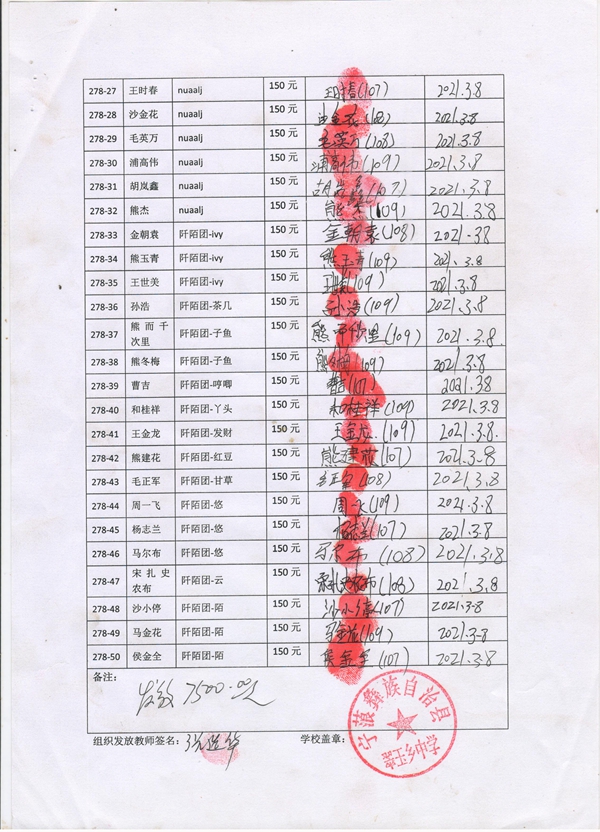 278-27 王时春 nuaalj 150 元 王时春(107) 2021.3.8
278-28 沙金花 nuaalj 150 元 沙金花(108) 2021.3.8
278-29 毛英万 nuaalj 150 元 毛英万(108) 2021.3.8
278-30 浦高伟 nuaalj 150 元 浦高伟(109) 2021.3.8
278-31 胡岚鑫 nuaalj 150 元 胡岚鑫(107) 2021.3.8
278-32 熊杰 nuaalj 150 元 熊杰(109) 2021.3.8
278-33 金朝袁 阡陌团-ivy 150 元 金朝袁(108) 2021.38
278-34 熊玉青 阡陌团-ivy 150 元 熊玉青(109) 2021.3.8
278-35 王世美 阡陌团-ivy 150 元 (109) 2021.3.8
278-36 孙浩 阡陌团-茶几 150 元 孙浩(109) 2021.3.8
278-37 熊而千次里 阡陌团-子鱼 150 元 (109) 2021.3.8
278-38 熊冬梅 阡陌团-子鱼 150 元 (109) 2021.3.8
278-39 曹吉 阡陌团-哼唧 150 元 曹吉(107) 2021.38
278-40 和桂祥 阡陌团-丫头 150 元 和桂祥(109) 2021.3.8
278-41 王金龙 阡陌团-发财 150 元 王金龙(109) 2021.3.8.
278-42 熊建花 阡陌团-红豆 150 元 熊建花(107) 2021.3-8
278-43 毛正军 阡陌团-甘草 150 元 毛正军(108) 2021.3.8
278-44 周一飞 阡陌团-悠 150 元 周一飞(109) 2021.3.8
278-45 杨志兰 阡陌团-悠 150 元 杨志兰(107) 2021.3.8
278-46 马尔布 阡陌团-悠 150 元 马尔布(108) 2021.3.8
278-47 宋扎史农布 阡陌团-云 150 元 (108) 2021.3.8
278-48 沙小停 阡陌团-陌 150 元 沙小停(107) 2021.3-8
278-49 马金花 阡陌团-陌 150 元 马金花(109) 2021.3-8
278-50 侯金全 阡陌团-陌 150 元 侯金全(107) 2021.3.8
备注:
发放7500.00元
组织发放教师签名: 学校盖章:
宁蒗彝族自治县